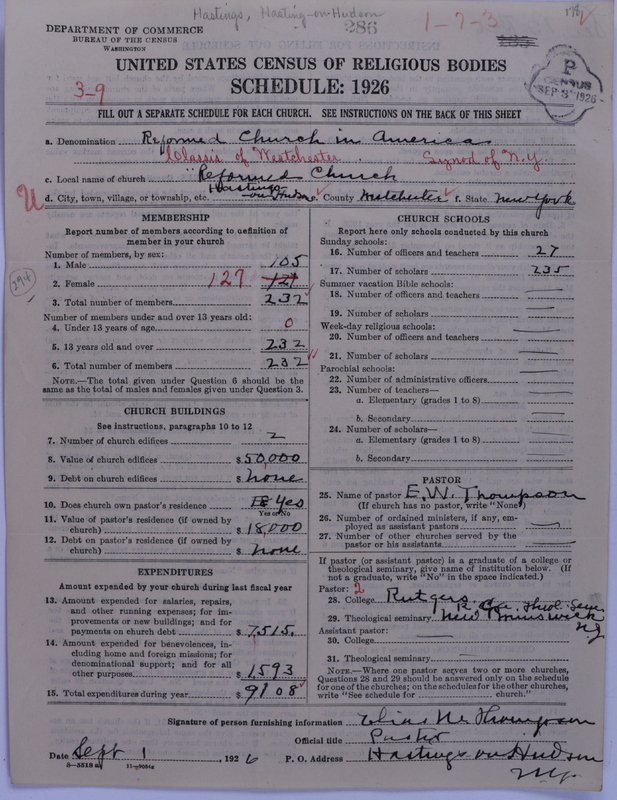 Hastings, Hasting-on-Hudson
286
1-7-3
DEPARTMENT OF COMMERCE
BUREAU OF THE CENSUS
WASHINGTON
UNITED STATES CENSUS OF RELIGIOUS BODIES
SCHEDULE: 1926
3-9
P
CENSUS
SEP 3 1926
FILL OUT A SEPARATE SCHEDULE FOR EACH CHURCH. SEE INSTRUCTIONS ON THE BACK OF THIS SHEET
a. Denomination Reformed Church in America
Classis of Westchester. Synod of N.Y.
c. Local name of church "Reformed Church
d. City, town, village, or township, etc. Hastings on Hudson e. County Westchester f. State New York
MEMBERSHIP
Report number of members according to definition of
member in your church
Number of members, by sex:
1. Male 105
2. Female 127 121
3. Total number of members 232
294
Number of members under and over 13 years old:
4. Under 13 years of age 0
5. 13 years old and over 232
6. Total number of members 232
NOTE.—The total given under Question 6 should be the
same as the total of males and females given under Question 3.
CHURCH BUILDINGS
See instructions, paragraphs 10 to 12
7. Number of church edifices 2
8. Value of church edifices $ 50,000
9. Debt on church edifices $ none
10. Does church own pastor's residence Yes
Yes or No
11. Value of pastor's residence (if owned by
church) $ 18,000
12. Debt on pastor's residence (if owned by
church) $ none
EXPENDITURES
Amount expended by your church during last fiscal year
13. Amount expended for salaries, repairs,
and other running expenses; for im-
provements or new buildings; and for
payments on church debt $ 7,515.
14. Amount expended for benevolences, in-
cluding home and foreign missions; for
denominational support; and for all
other purposes $ 1,593
15. Total expenditures during year $ 9108
CHURCH SCHOOLS
Report here only schools conducted by this church
Sunday schools:
16. Number of officers and teachers 27
17. Number of scholars 235
Summer vacation Bible schools:
18. Number of officers and teachers
19. Number of scholars
Week-day religious schools:
20. Number of officers and teachers
21. Number of scholars
Parochial schools:
22. Number of administrative officers
23. Number of teachers—
a. Elementary (grades 1 to 8)
b. Secondary
24. Number of scholars—
a. Elementary (grades 1 to 8)
b. Secondary
PASTOR
25. Name of pastor E. W. Thompson
(If church has no pastor, write "None")
26. Number of ordained ministers, if any, em-
ployed as assistant pastors
27. Number of other churches served by the
pastor or his assistants
If pastor (or assistant pastor) is a graduate of a college or
theological seminary, give name of institution below. (If
not a graduate, write "No" in the space indicated.)
Pastor: 2
28. College Rutgers
29. Theological seminary New Brunswick NJ
Assistant pastor:
30. College
31. Theological seminary
NOTE.—Where one pastor serves two or more churches,
Questions 28 and 29 should be answered only on the schedule
for one of the churches; on the schedules for the other churches,
write "See schedule for church."
Signature of person furnishing information Elias W. Thompson
Official title Pastor
Date Sept 1, 1926 P. O. Address Hastings on Hudson
N.Y.